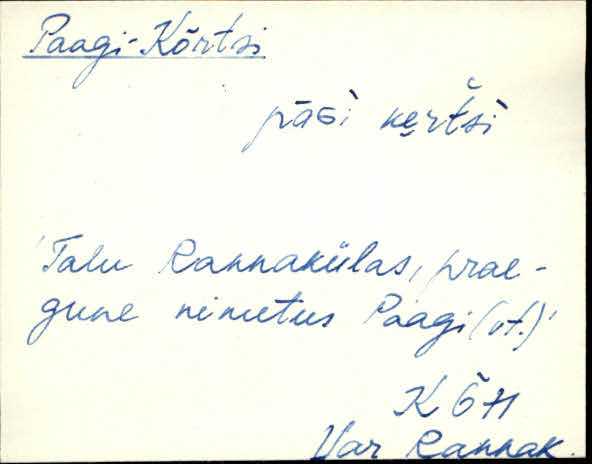 Paagi-Kõrtsi
pāɢi kerťsi
'Talu Rannakülas, prae-
gune nimetus Paagi (vt.)'
KÕH
Var Rannak.